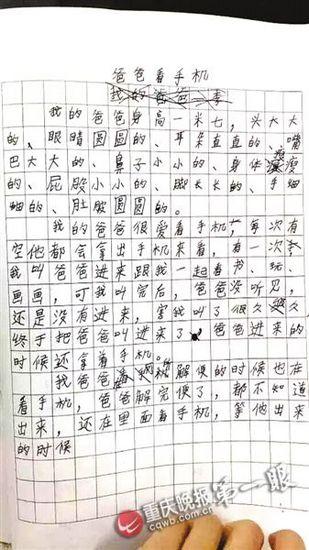 爸爸看手机
我的爸爸李
我的爸爸身高一米七，头大大
的、眼睛圆圆的、耳朵直直的、嘴
巴大大的、鼻子小小的、身体瘦瘦
的、屁股小小的、脚长长的、手细
细的、肚脸圆圆的。
我的爸爸很爱看手机，每次有
空他都会拿出手机来看，有一次
我叫爸爸进来跟我一起看书、玩、
画画，可我叫完后，爸爸没听见，
还是没有进来，害我叫了很久
终于把爸爸叫进来了，爸爸进来的
时候还拿着手机。
我爸爸解便的时候也在
看手机，爸爸解完便了，都不知道
出来，还在里面看手机，等他出来
的时候
重庆晚报 第一眼
www.cqwb.com.cn